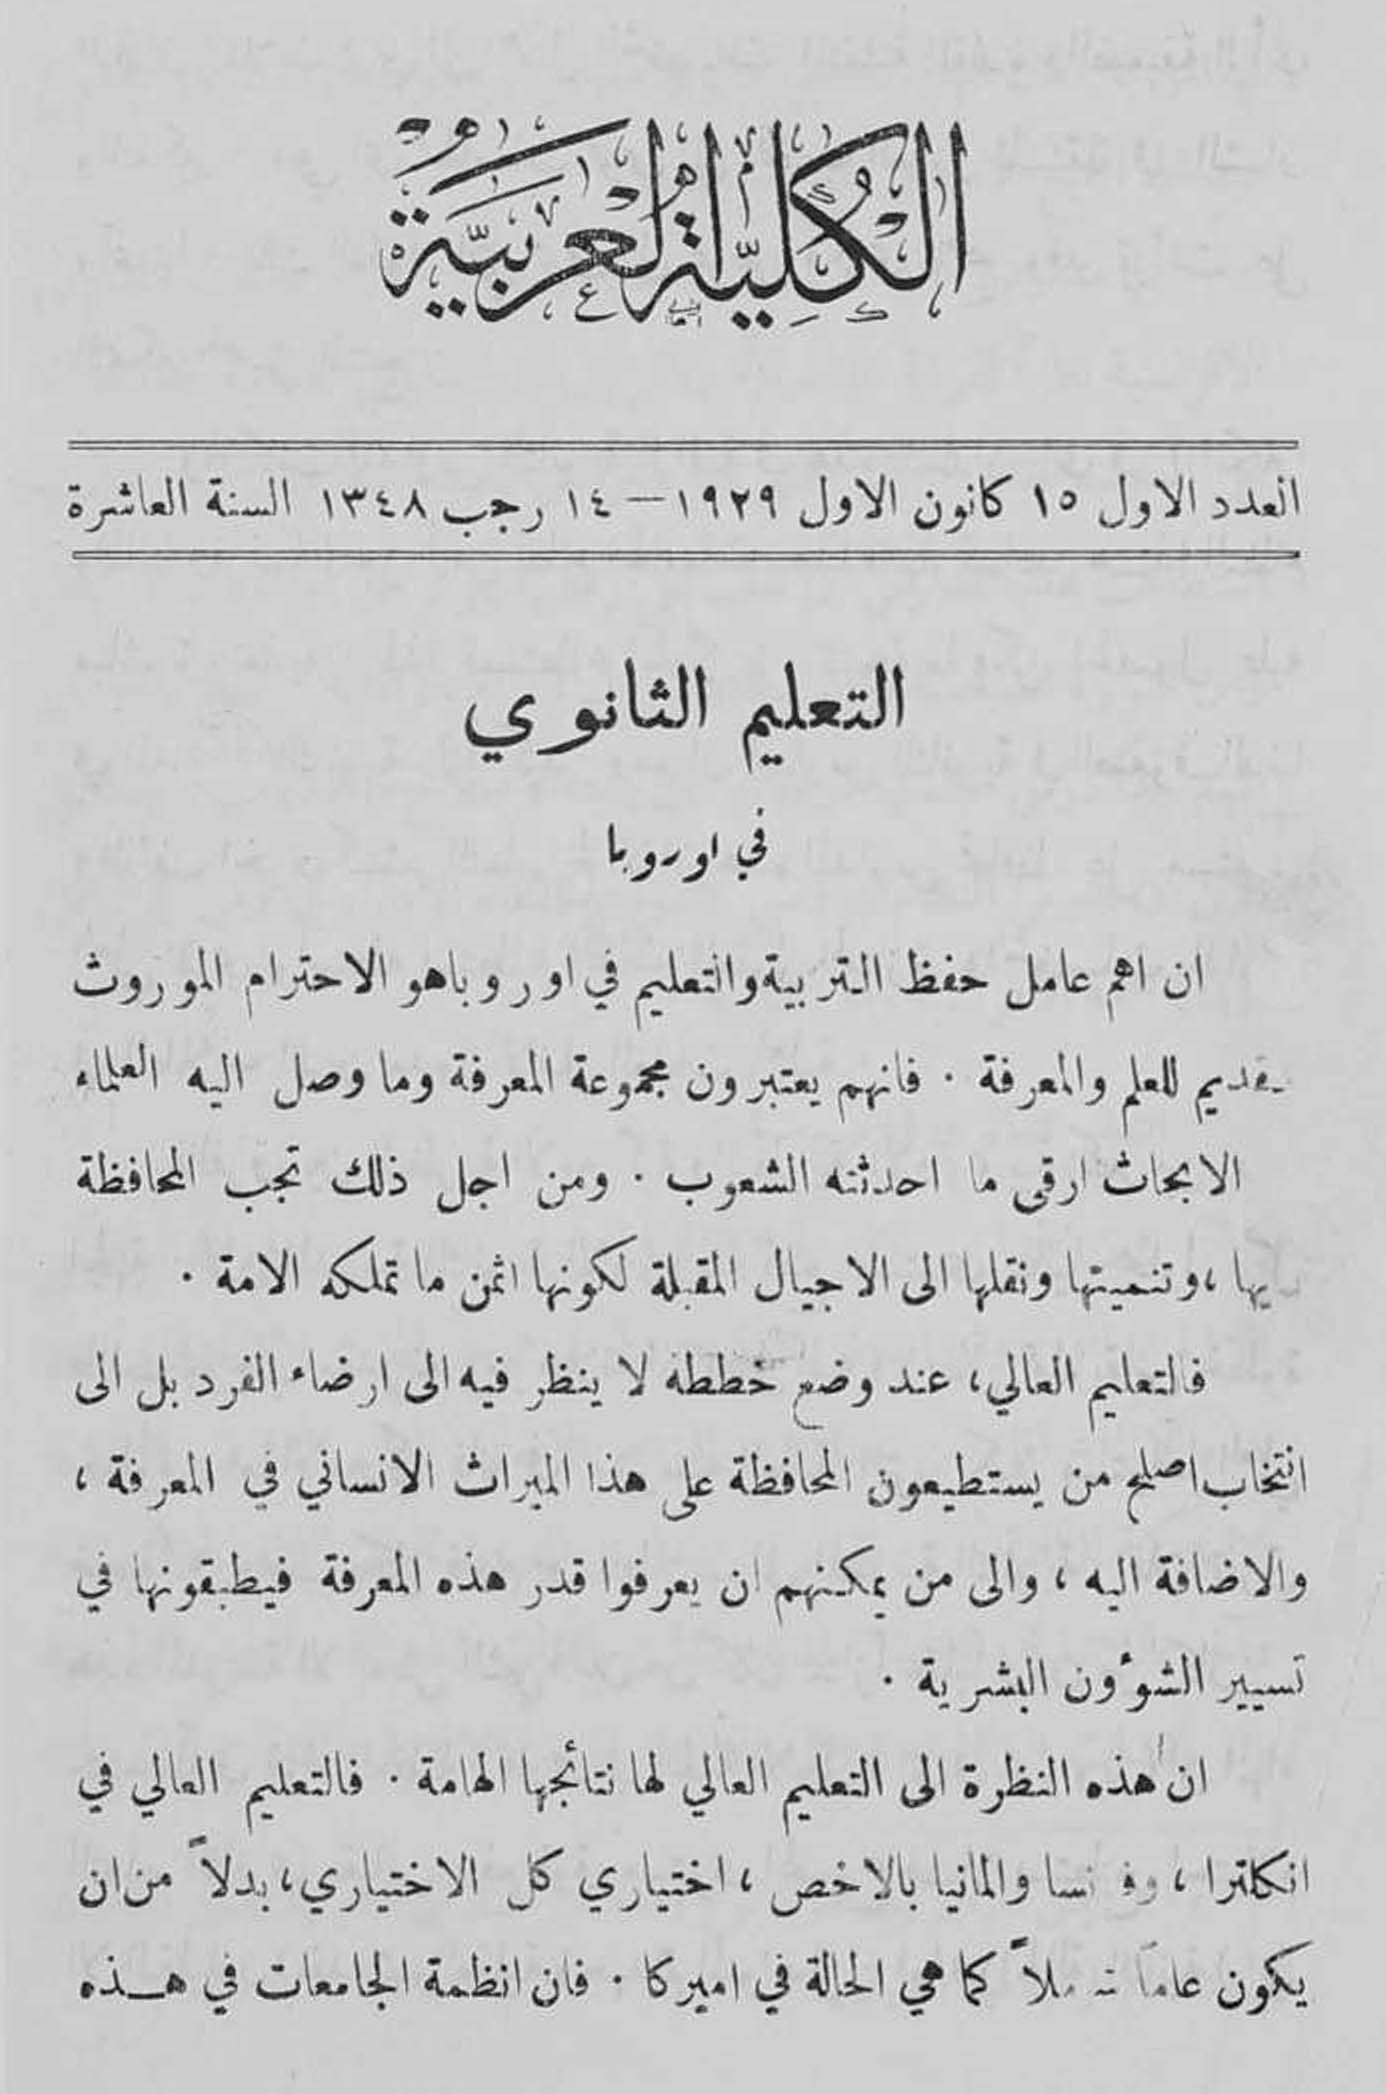 الكلية العربية
العدد الاول ١٥ كانون الاول ١٩٢٩ — ١٤ رجب ١٣٤٨ السنة العاشرة
التعليم الثانوي
في اوروبا
ان اهم عامل حفظ التربية والتعليم في اوروبا هو الاحترام الموروث
للعلم والمعرفة . فانهم يعتبرون مجموعة المعرفة وما وصل اليه العلماء
الابحاث ارقى ما احدثته الشعوب . ومن اجل ذلك تجب المحافظة
، وتنميتها ونقلها الى الاجيال المقبلة لكونها اثمن ما تملكه الامة .
فالتعليم العالي ، عند وضع خططه لا ينظر فيه الى ارضاء الفرد بل الى
انتخاب اصلح من يستطيعون المحافظة على هذا الميراث الانساني في المعرفة ،
والاضافة اليه ، والى من يمكنهم ان يعرفوا قدر هذه المعرفة فيطبقونها في
تسيير الشوٴون البشرية .
ان هذه النظرة الى التعليم العالي لها نتائجها الهامة . فالتعليم العالي في
انكلترا ، وفرنسا والمانيا بالاخص ، اختياري كل الاختياري ، بدلاً من ان
يكون عاماً كما هي الحالة في اميركا . فان انظمة الجامعات في هـذه